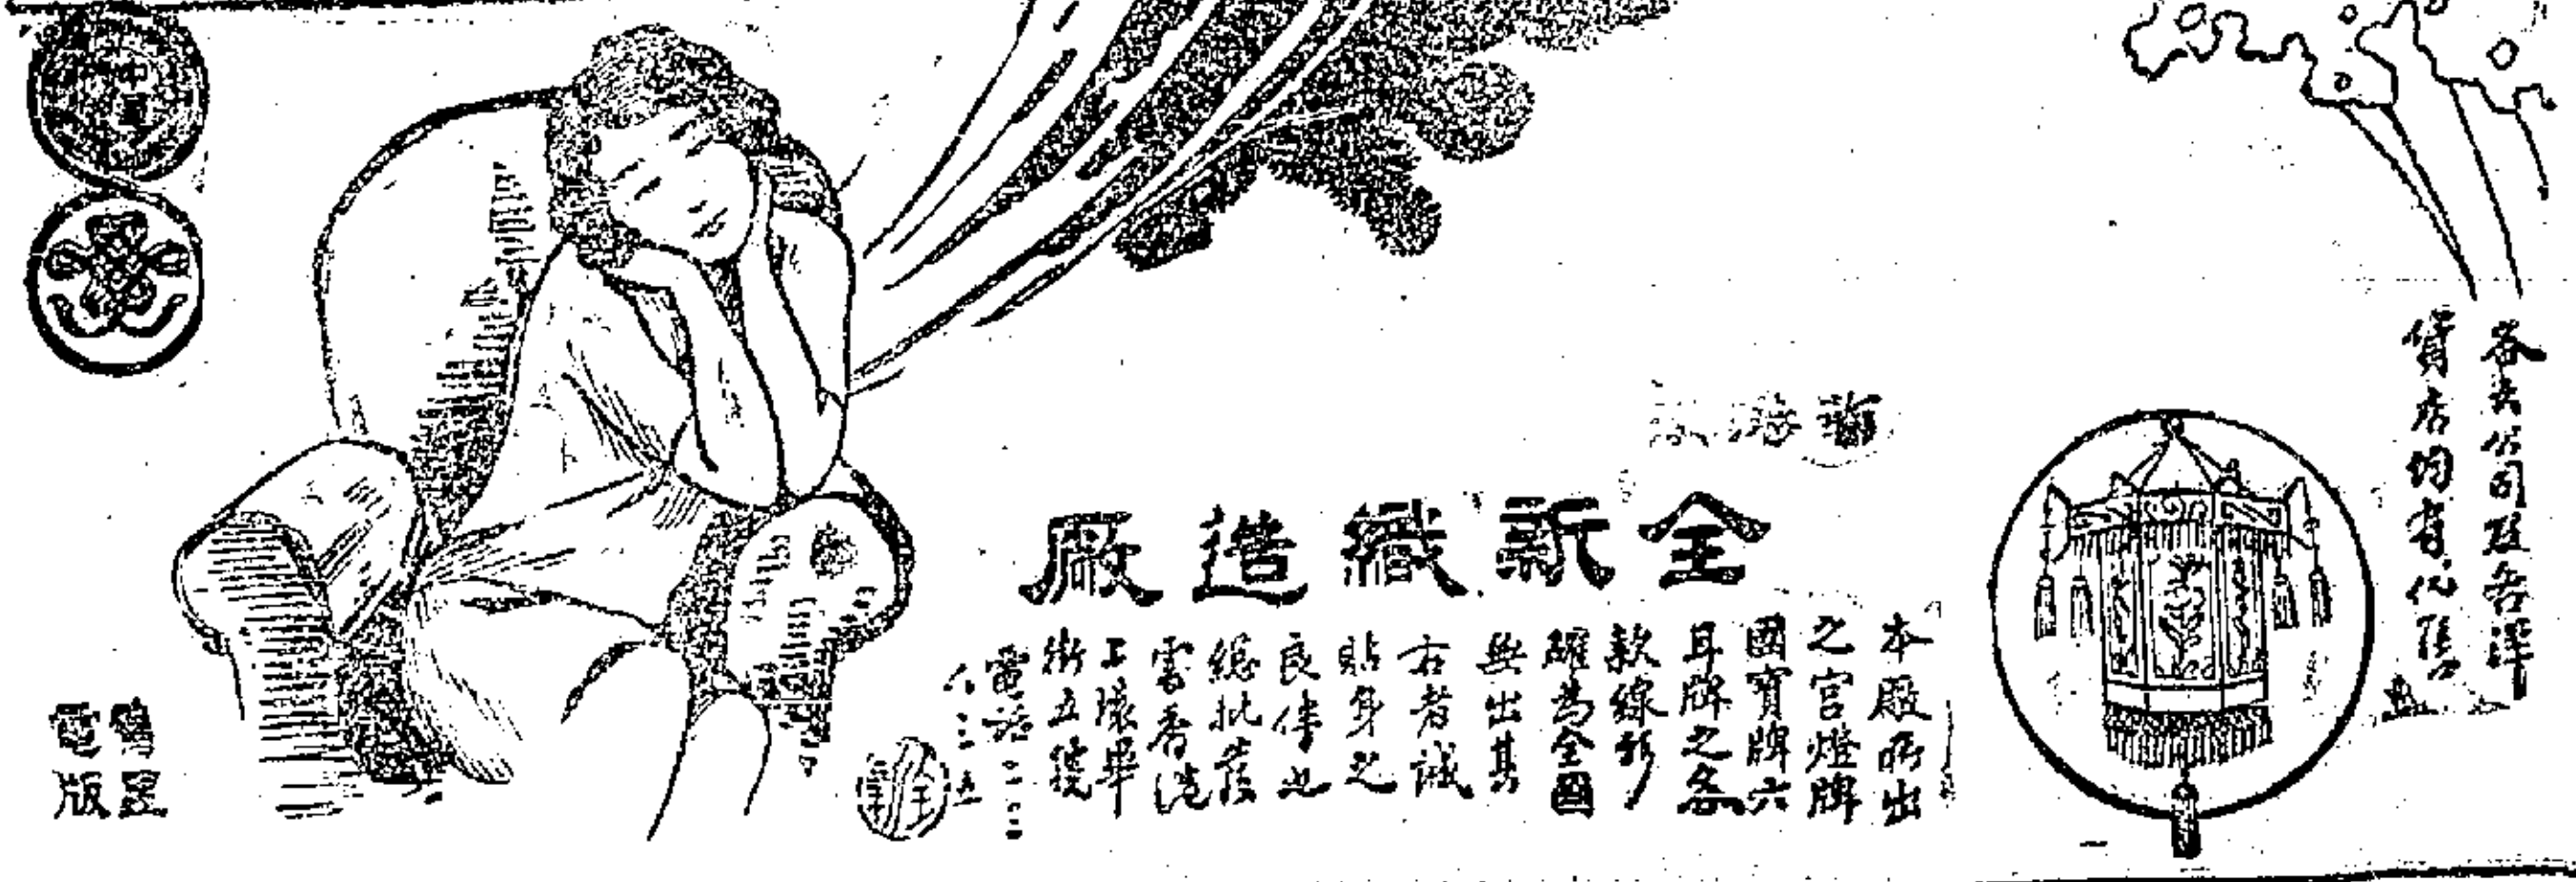 各大公司及各洋
貨店均有代售
香港
全新織造厰
本厰所出
之宮燈牌
國寶牌六
耳牌之各
款線衫
確為全國
無出其
右者誠
貼身之
良伴也
總批發
處香港
上環畢
街五號
電話二二三
八二三五
電版
中國